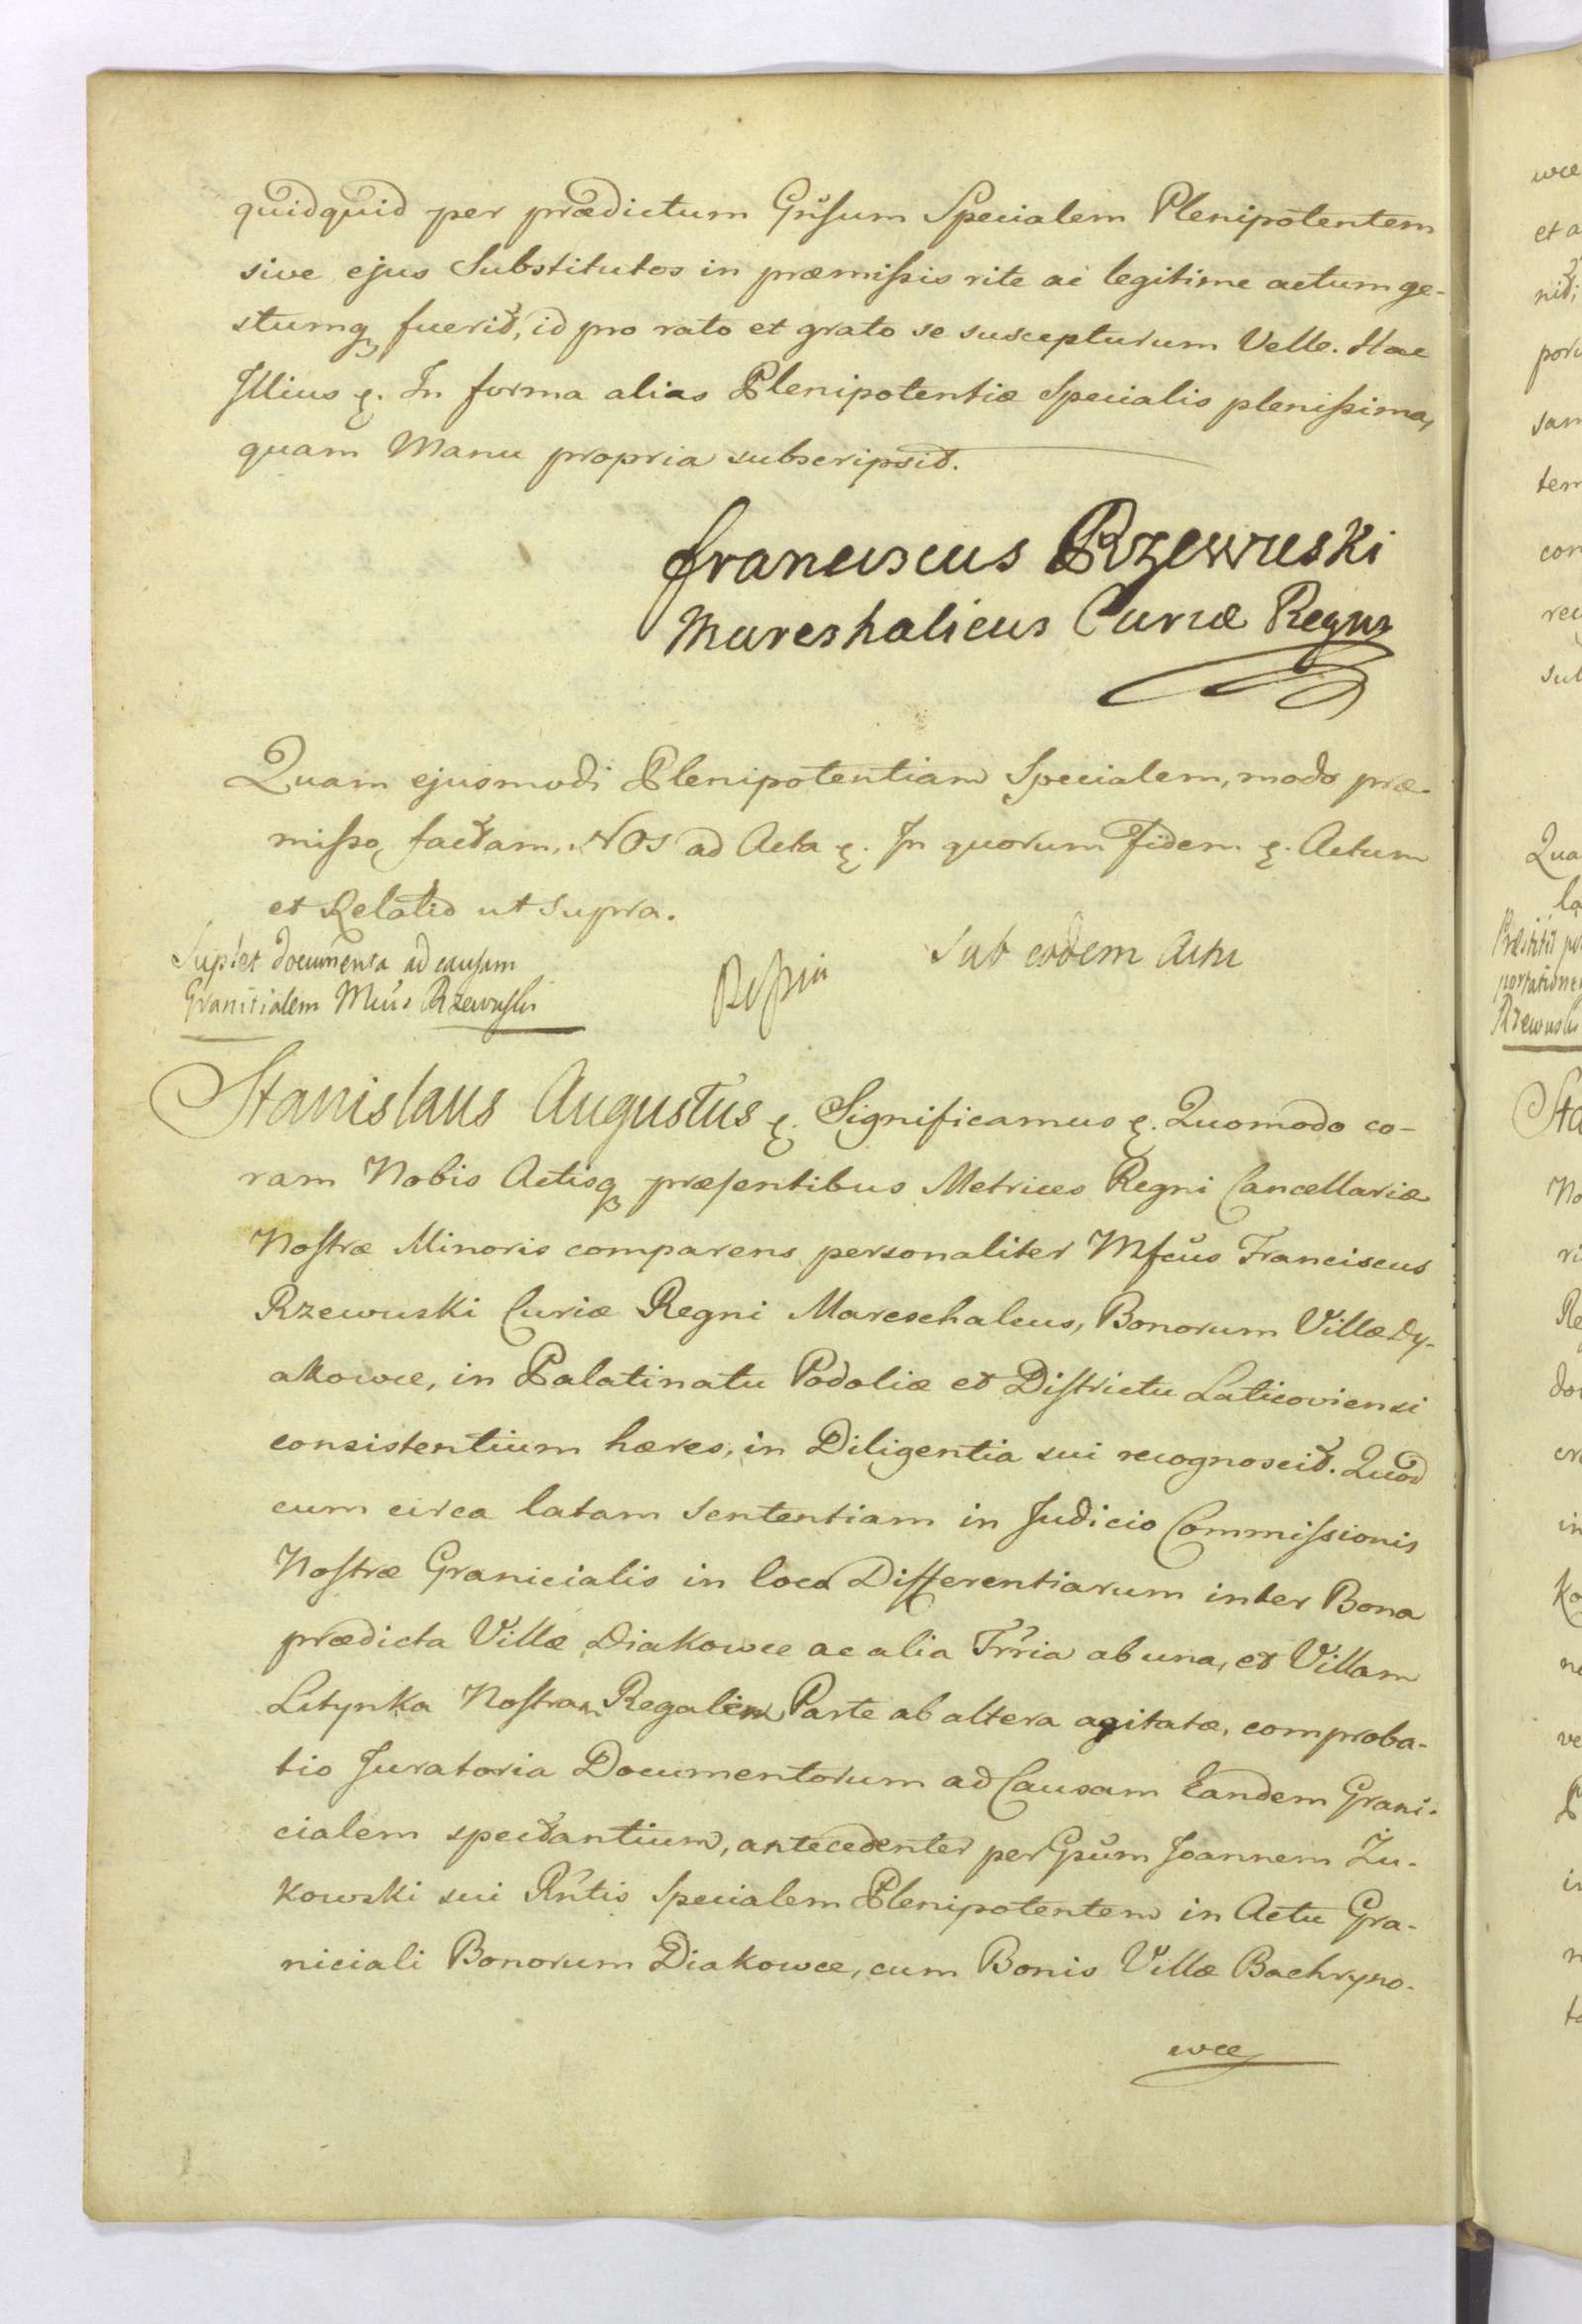 quidquid per prædictum Gñsum Specialem Plenipotentem
sive ejus Substitutos in præmissis rite ac legitime actum ge-
stumq fuerit, id pro rato et grato se suscepturum Velle. Hac
Illius &. In forma alias Plenipotentiæ Specialis plenissima,
quam Manu propria subscripsit.
Franciscus Rzewuski
Mareshalicus Curiæ Regni
Quam ejusmodi Plenipotentiam Specialem, modo præ-
misso, factam, NOS ad Acta &. In quorum Fidem &. Actum
et Relatio ut supra.
Suplet documenta ad causam
Granicialem Mcus Rzewuski
Sub eodem Actu
Stanislaus Augustus &. Significamus &. Quomodo co-
ram Nobis Actisq præsentibus Metrices Regni Cancellariæ
Nostræ Minoris comparens personaliter Mfcus Franciscus
Rzewuski Curiæ Regni Mareschalcus, Bonorum Villæ Dy-
akowce, in Palatinatu Podoliæ et Districtu Laticoviensi
consistentium hæres, in Diligentia sui recognoscit. Quod
cum circa latam Sententiam in Judicio Commissionis
Nostræ Granicialis in loco Differentiarum inter Bona
prædicta Villæ Diakowce ac alia Trria ab una, et Villam
Litynka Nostram Regalem Parte ab altera agitatæ, comproba-
tio Juratoria Documentorum ad Causam Eandem Grani-
cialem spectantium, antecedenter per Gsum Joannem Żu-
kowski sui Rntis Specialem Plenipotentem in Actu Gra-
niciali Bonorum Diakowce, cum Bonis Villæ Bachryno-
wce